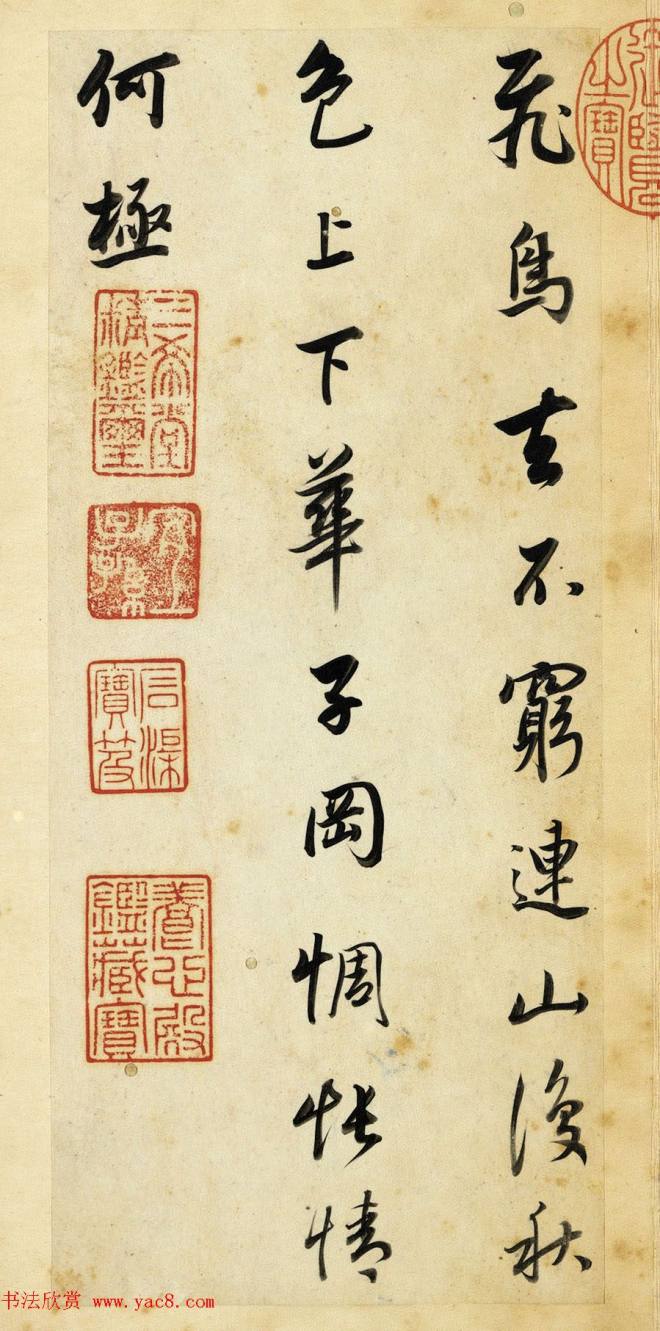 飛鳥去不窮連山復秋
色上下華子岡惆悵情
何極
三希堂精鑑璽
宜子孫
石渠寶笈
養心殿鑑藏寶
書法欣赏 www.yac8.com